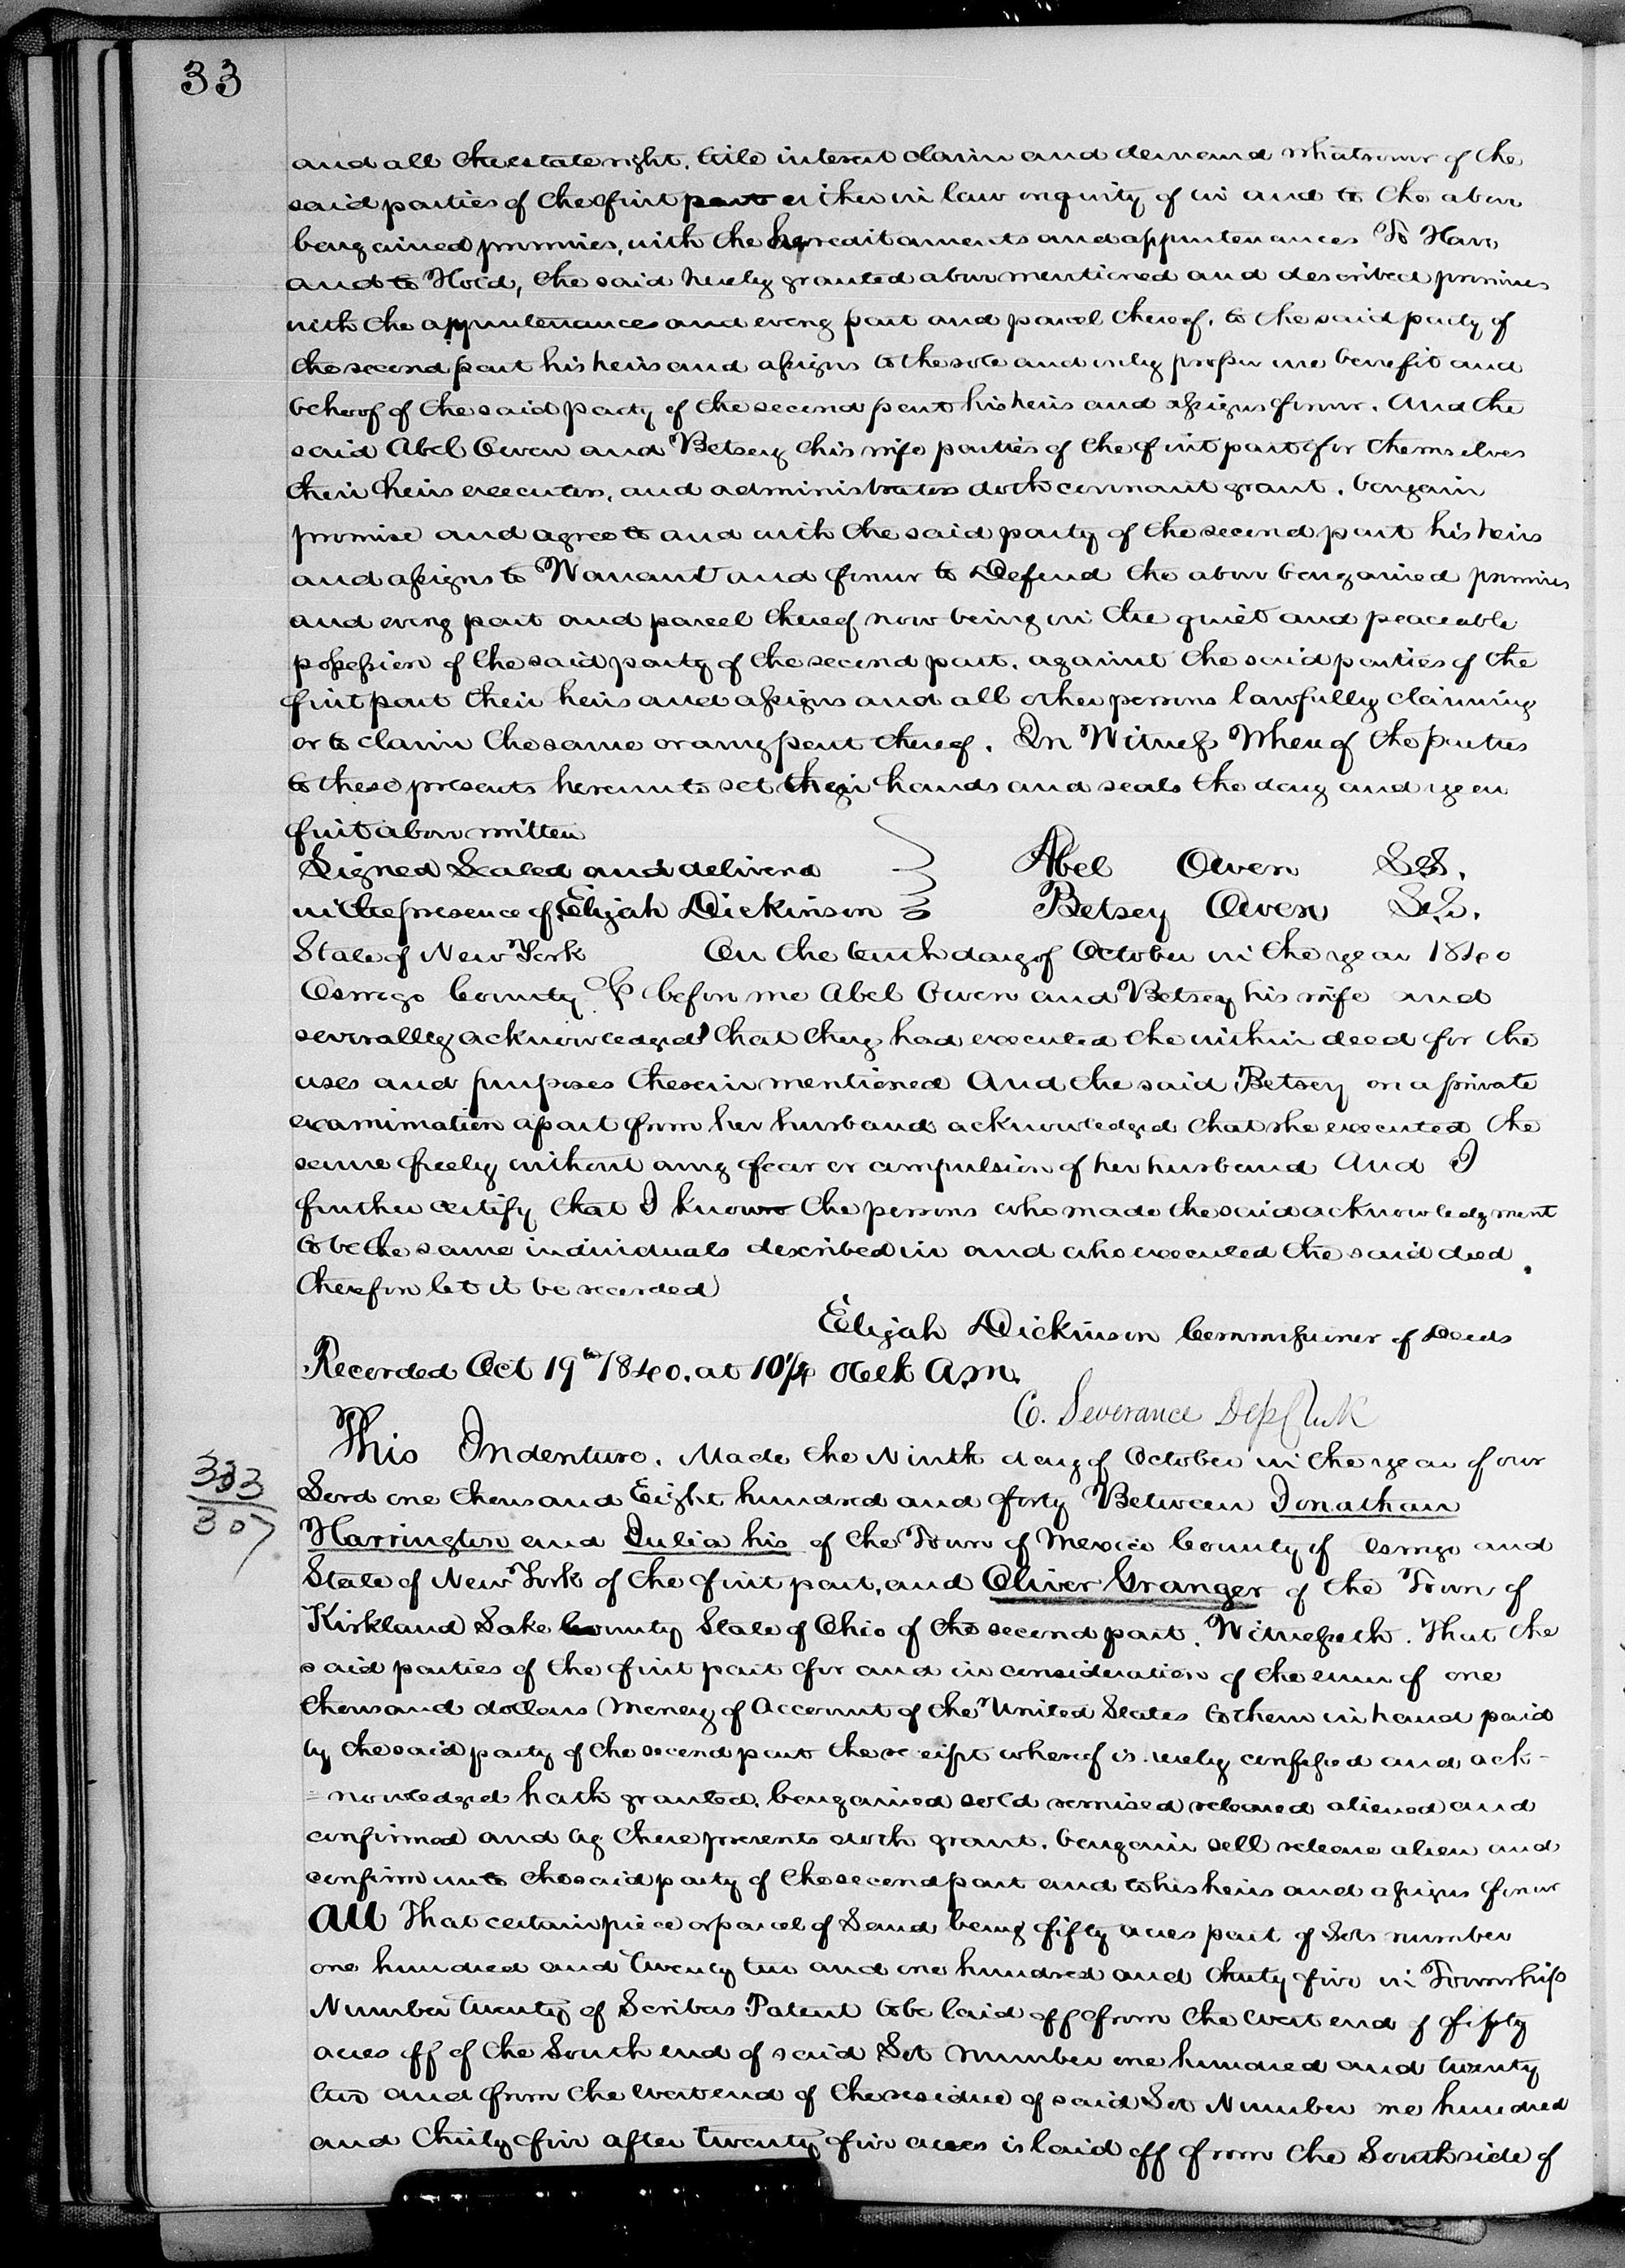 33
and all the estate right, title interest claim and demand whatsoever of the
said parties of the first part either in law or equity of in and to the above
bargained premises, with the hereditaments and appurtenances To Have
and to Hold, the said hereby granted above mentioned and described premises
with the appurtenances and every part and parcel thereof, to the said party of
the second part his heirs and assigns to the sole and only proper use benefit and
behoof of the said party of the second part his heirs and assigns forever. And the
said Abel Owen and Betsey his wife parties of the first part for themselves
their heirs executors, and administrators doth covenant grant, bargain
promise and agree to and with the said party of the second part his heirs
and assigns to Warrant and forever to Defend the above bargained premises
and every part and parcel thereof now being in the quiet and peaceable
possession of the said party of the second part, against the said parties of the
first part their heirs and assigns and all other persons lawfully claiming
or to claim the same or any part thereof. In Witness Whereof the parties
to these presents hereunto set their hands and seals the day and year
first above written
Signed Sealed and delivered Abel Owen L.S.
in the presence of Elijah Dickinson Betsey Owen L.S.
State of New York On the tenth day of October in the year 1840
Oswego County Ss before me Abel Owen and Betsey his wife and
severally acknowledged that they had executed the within deed for the
uses and purposes therein mentioned And the said Betsey on a private
examination apart from her husband acknowledged that she executed the
same freely without any fear or compulsion of her husband And I
further certify that I know the persons who made the said acknowledgment
to be the same individuals described in and who executed the said deed
therefore let it be recorded
Elijah Dickinson Commissioner of Deeds
Recorded Oct 19th 1840. at 10 1/4 oclk A.M.
C. Severance Dep Clerk
This Indenture. Made the Ninth day of October in the year of our
333
307
Lord one thousand Eight hundred and forty Between Jonathan
Harrington and Julia his of the Town of Mexico County of Oswego and
State of New York of the first part, and Oliver Granger of the Town of
Kirkland Lake County State of Ohio of the second part. Witnesseth. That the
said parties of the first part for and in consideration of the sum of one
thousand dollars Money of Account of the United States to them in hand paid
by the said party of the second part the receipt whereof is hereby confessed and ack-
=nowledged hath granted, bargained sold remised released aliened and
confirmed and by these presents doth grant, bargain sell release alien and
confirm unto the said party of the second part and to his heirs and assigns forever
All That certain piece or parcel of Land being fifty acres part of Lots number
one hundred and twenty two and one hundred and thirty five in Township
Number twenty of Scribas Patent to be laid off from the West end of fifty
acres off of the South end of said Lot Number one hundred and twenty
two and from the West end of the residue of said Lot Number one hundred
and thirty five after twenty five acres is laid off from the South side of